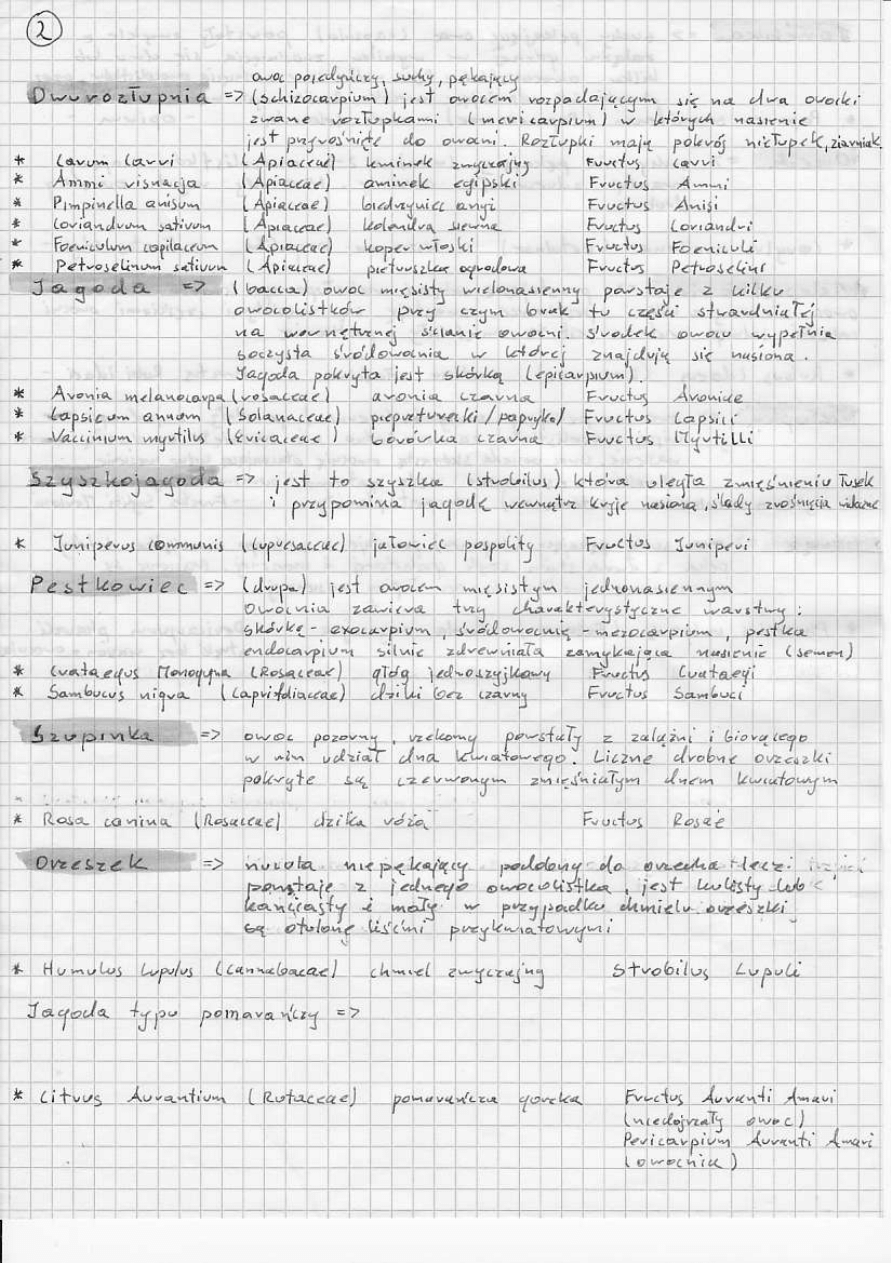 2
owoc pojedyńczy, suchy, pękający
Dwurozłupnia => (schizocarpium) jest owocem rozpadającym się na dwa owocki
zwane rozłupkami (mericarpium) w których nasienie
jest przyrośnięte do owocni. Rozłupki mają pokrój niełupek, ziarniak.
* Carum Carvi (Apiaceae) kminek zwyczajny Fructus Carvi
* Ammi visnacja (Apiaceae) aminek egipski Fructus Ammi
* Pimpinella anisum (Apiaceae) biedrzyniec anyż Fructus Anisi
* Coriandrum sativum (Apiaceae) kolendra siewna Fructus Coriandri
* Foeniculum capilaceum (Apiaceae) koper włoski Fructus Foeniculi
* Petroselinum sativum (Apiaceae) pietruszka ogrodowa Fructus Petroselini
Jagoda => (bacca) owoc mięsisty wielonasienny powstaje z kilku
owocolistków przy czym brak tu części stwardniałej
na wewnętrznej ścianie owocni. Środek owocu wypełnia
soczysta śródowocnia w której znajdują się nasiona.
Jagoda pokryta jest skórką (epicarpium).
* Aronia melanocarpa (rosaceae) aronia czarna Fructus Aroniae
* Capsicum annum (Solanaceae) pieprzturecki /papryka/ Fructus Capsici
* Vaccinium myrtilus (Ericaceae) borówka czarna Fructus Myrtilli
Szyszkojagoda => jest to szyszka (strobilus) która uległa zmięśnieniu łusek
i przypomina jagodę wewnątrz kryje nasiona, ślady zrośnięcia widoczne
* Juniperus communis (Cupresaceae) jałowiec pospolity Fructus Juniperi
Pestkowiec => (drupa) jest owocem mięsistym jednonasiennym
Owocnia zawiera trzy charakterystyczne warstwy:
skórkę - exocarpium, śródowocnię - mezocarpium, pestka
endocarpium silnie zdrewniała zamykająca nasienie (semen)
* Crataegus Monogyna (Rosaceae) głóg jednoszyjkowy Fructus Crataegi
* Sambucus nigra (Caprifoliaceae) dziki bez czarny Fructus Sambuci
Szupinka => owoc pozorny, rzekomy powstały z zalążni i biorącego
w nim udział dna kwiatowego. Liczne drobne orzeszki
pokryte są czerwonym zmięśniałym dnem kwiatowym
* Rosa canina (Rosaceae) dzika róża Fructus Rosae
Orzeszek => nucula niepękający podobny do orzecha lecz
powstaje z jednego owocolistka, jest kulisty lub
kanciasty i mały w przypadku chmielu orzeszki
są otulone liśćmi przykwiatowymi
* Humulus Lupulus (Cannabacae) chmiel zwyczajny Strobilus Lupuli
Jagoda typu pomarańczy =>
* Citrus Aurantium (Rutaceae) pomarańcza gorzka Fructus Auranti Amari
(niedojrzały owoc)
Pericarpium Auranti Amari
(owocnia)